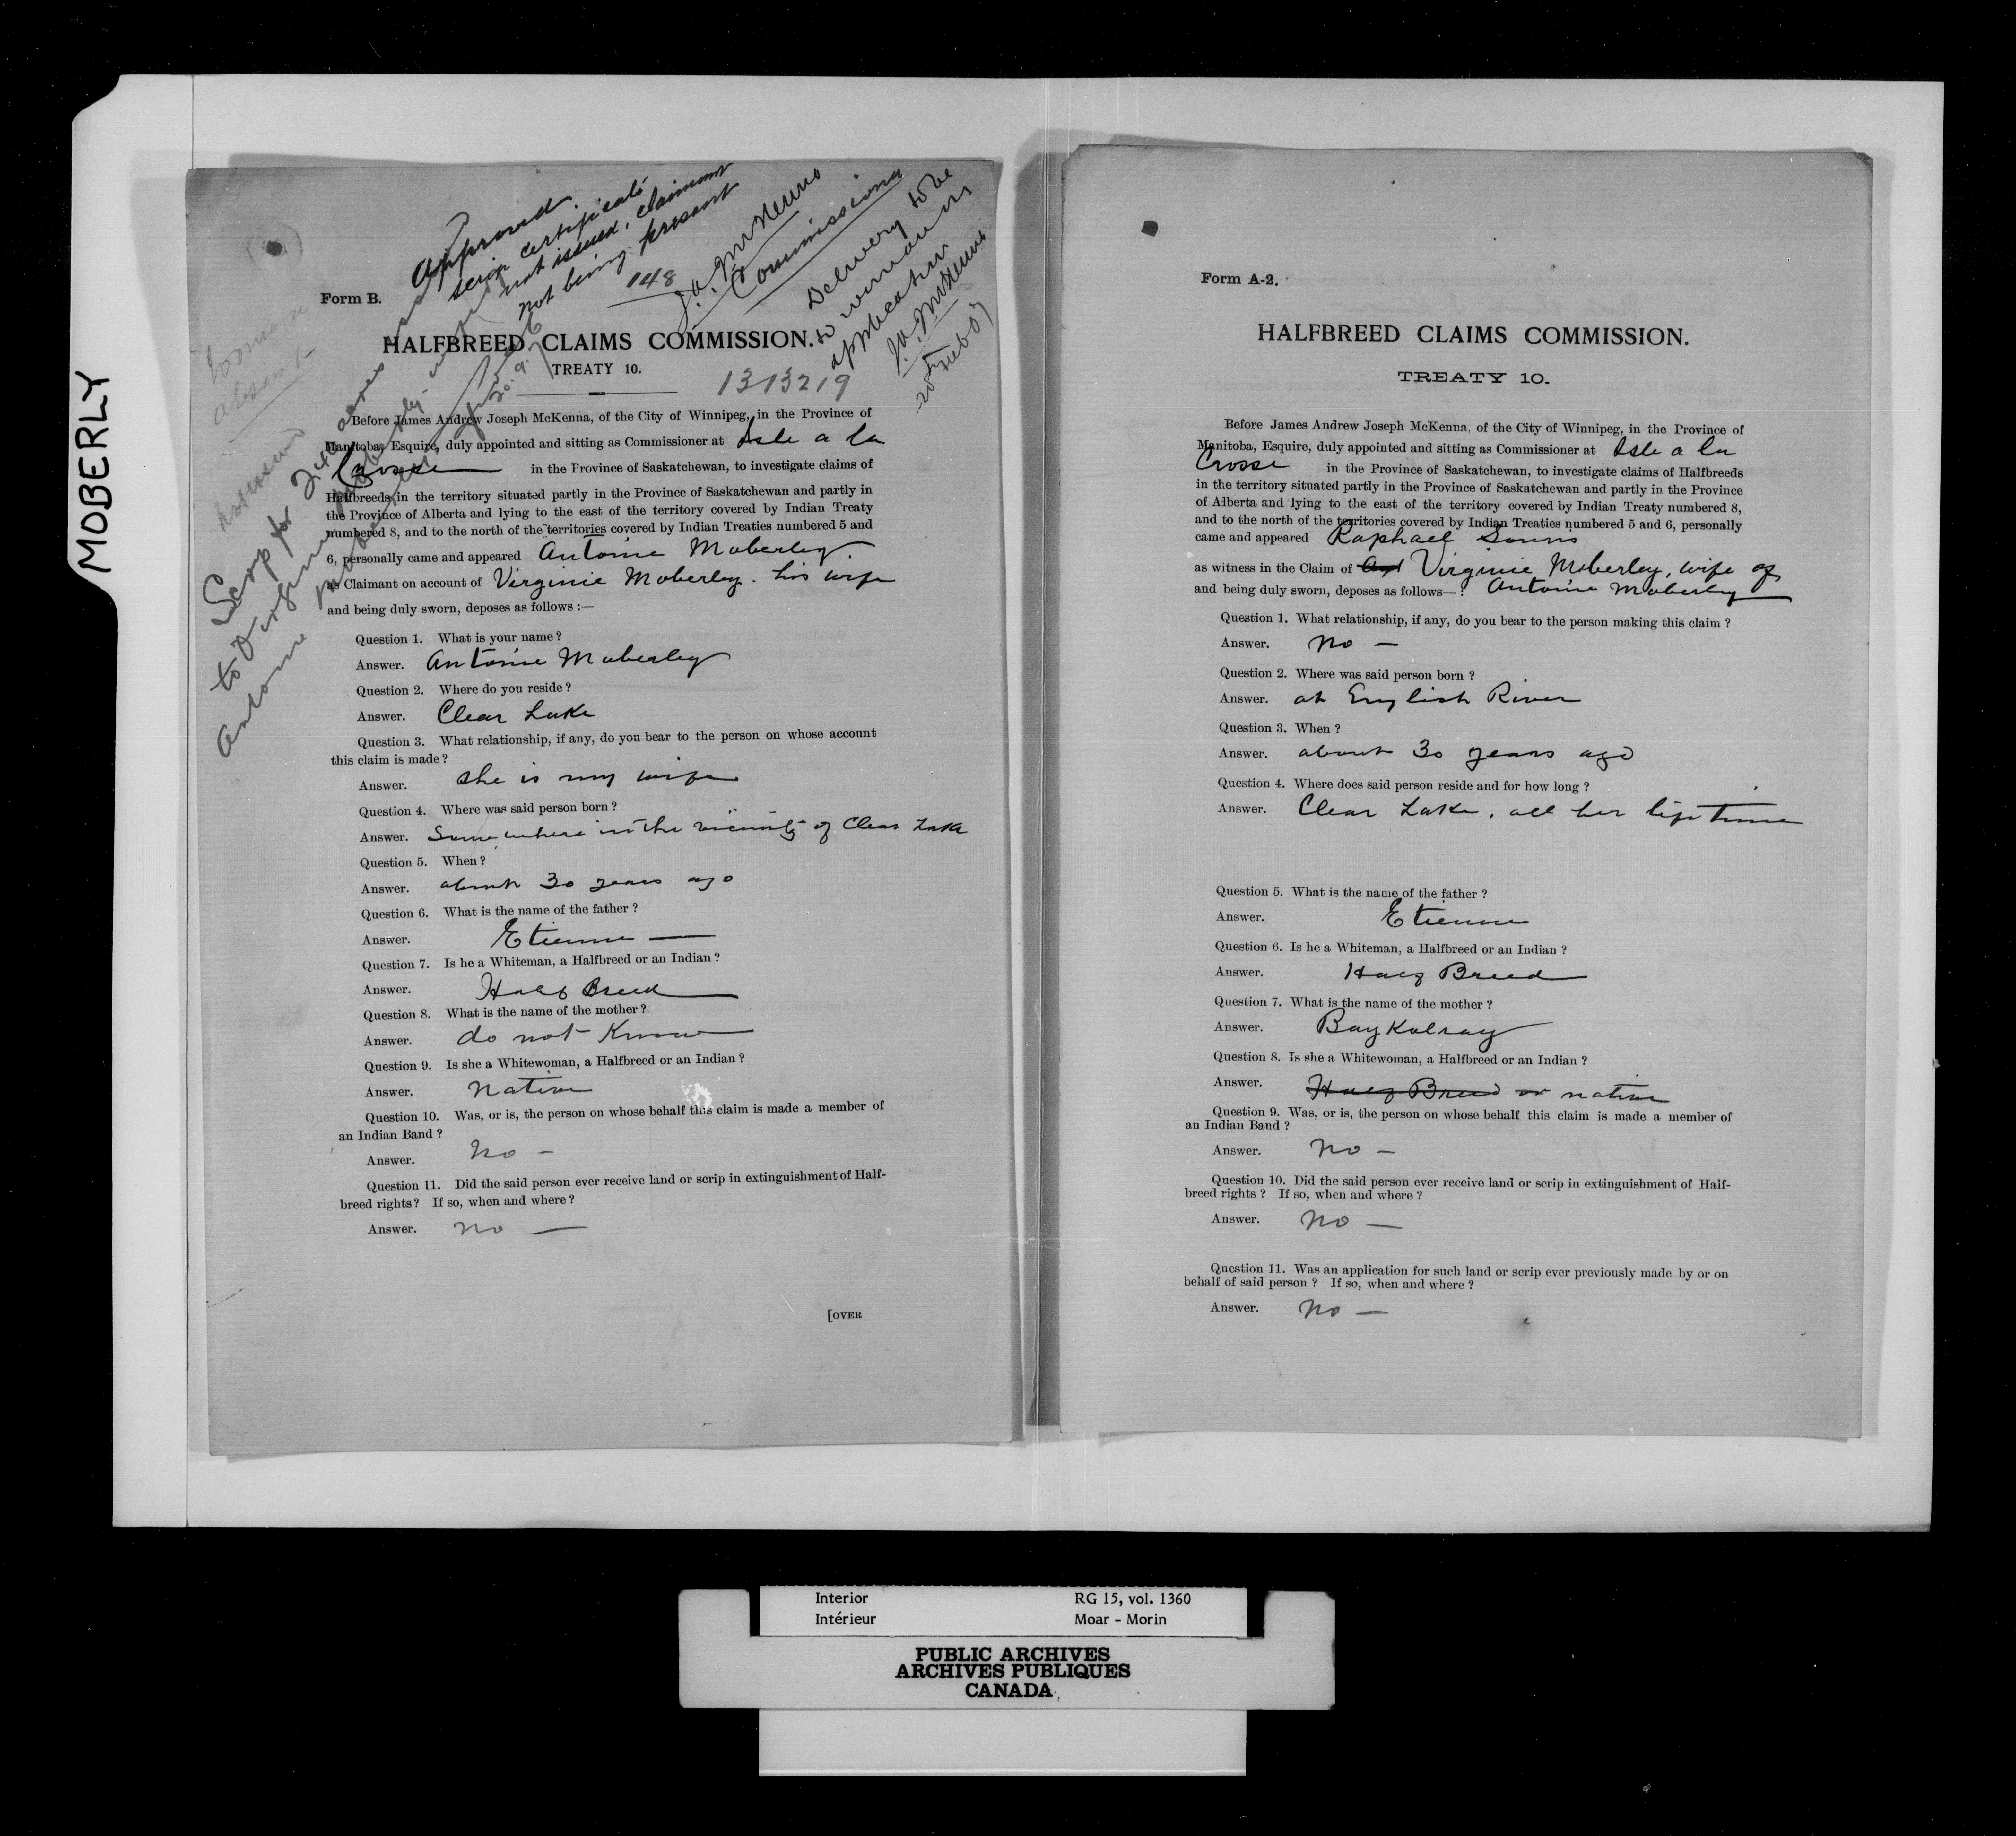 MOBERLY
Approved.
scrip certificate
not issued, claimant
not being present
148
J.A.J. McKenna
Commissioner
Delivery to be
to woman on
application
J.A.J. McKenna
Form B.
HALFBREED CLAIMS COMMISSION.
TREATY 10.
1313219
woman
absent
Scrip for 240 acres
to Virginie Moberley wife of
Antoine Moberley
Before James Andrew Joseph McKenna, of the City of Winnipeg, in the Province of
Manitoba, Esquire, duly appointed and sitting as Commissioner at Isle a la
Crosse in the Province of Saskatchewan, to investigate claims of
Halfbreeds in the territory situated partly in the Province of Saskatchewan and partly in
the Province of Alberta and lying to the east of the territory covered by Indian Treaty
numbered 8, and to the north of the territories covered by Indian Treaties numbered 5 and
6, personally came and appeared Antoine Moberley.
as Claimant on account of Virginie Moberley. his wife
and being duly sworn, deposes as follows :—
Question 1. What is your name ?
Answer. Antoine Moberley
Question 2. Where do you reside ?
Answer. Clear Lake
Question 3. What relationship, if any, do you bear to the person on whose account
this claim is made ?
Answer. She is my wife
Question 4. Where was said person born ?
Answer. Somewhere in the vicinity of Clear Lake
Question 5. When ?
Answer. about 30 years ago
Question 6. What is the name of the father ?
Answer. Etienne —
Question 7. Is he a Whiteman, a Halfbreed or an Indian ?
Answer. Half Breed
Question 8. What is the name of the mother ?
Answer. do not Know
Question 9. Is she a Whitewoman, a Halfbreed or an Indian ?
Answer. Native
Question 10. Was, or is, the person on whose behalf this claim is made a member of
an Indian Band ?
Answer. No –
Question 11. Did the said person ever receive land or scrip in extinguishment of Half-
breed rights ? If so, when and where ?
Answer. No —
[OVER
Form A-2.
HALFBREED CLAIMS COMMISSION.
TREATY 10.
Before James Andrew Joseph McKenna, of the City of Winnipeg, in the Province of
Manitoba, Esquire, duly appointed and sitting as Commissioner at Isle a la
Crosse in the Province of Saskatchewan, to investigate claims of Halfbreeds
in the territory situated partly in the Province of Saskatchewan and partly in the Province
of Alberta and lying to the east of the territory covered by Indian Treaty numbered 8,
and to the north of the territories covered by Indian Treaties numbered 5 and 6, personally
came and appeared Raphael
as witness in the Claim of Virginie Moberley, wife of
and being duly sworn, deposes as follows— : Antoine Moberley
Question 1. What relationship, if any, do you bear to the person making this claim ?
Answer. No —
Question 2. Where was said person born ?
Answer. at English River
Question 3. When ?
Answer. about 30 years ago
Question 4. Where does said person reside and for how long ?
Answer. Clear Lake, all her life time
Question 5. What is the name of the father ?
Answer. Etienne
Question 6. Is he a Whiteman, a Halfbreed or an Indian ?
Answer. Half Breed
Question 7. What is the name of the mother ?
Answer. Baykolray
Question 8. Is she a Whitewoman, a Halfbreed or an Indian ?
Answer. Half Breed or native
Question 9. Was, or is, the person on whose behalf this claim is made a member of
an Indian Band ?
Answer. No –
Question 10. Did the said person ever receive land or scrip in extinguishment of Half-
breed rights ? If so, when and where ?
Answer. No —
Question 11. Was an application for such land or scrip ever previously made by or on
behalf of said person ? If so, when and where ?
Answer. No —
Interior RG 15, vol. 1360
Intérieur Moar - Morin
PUBLIC ARCHIVES
ARCHIVES PUBLIQUES
CANADA